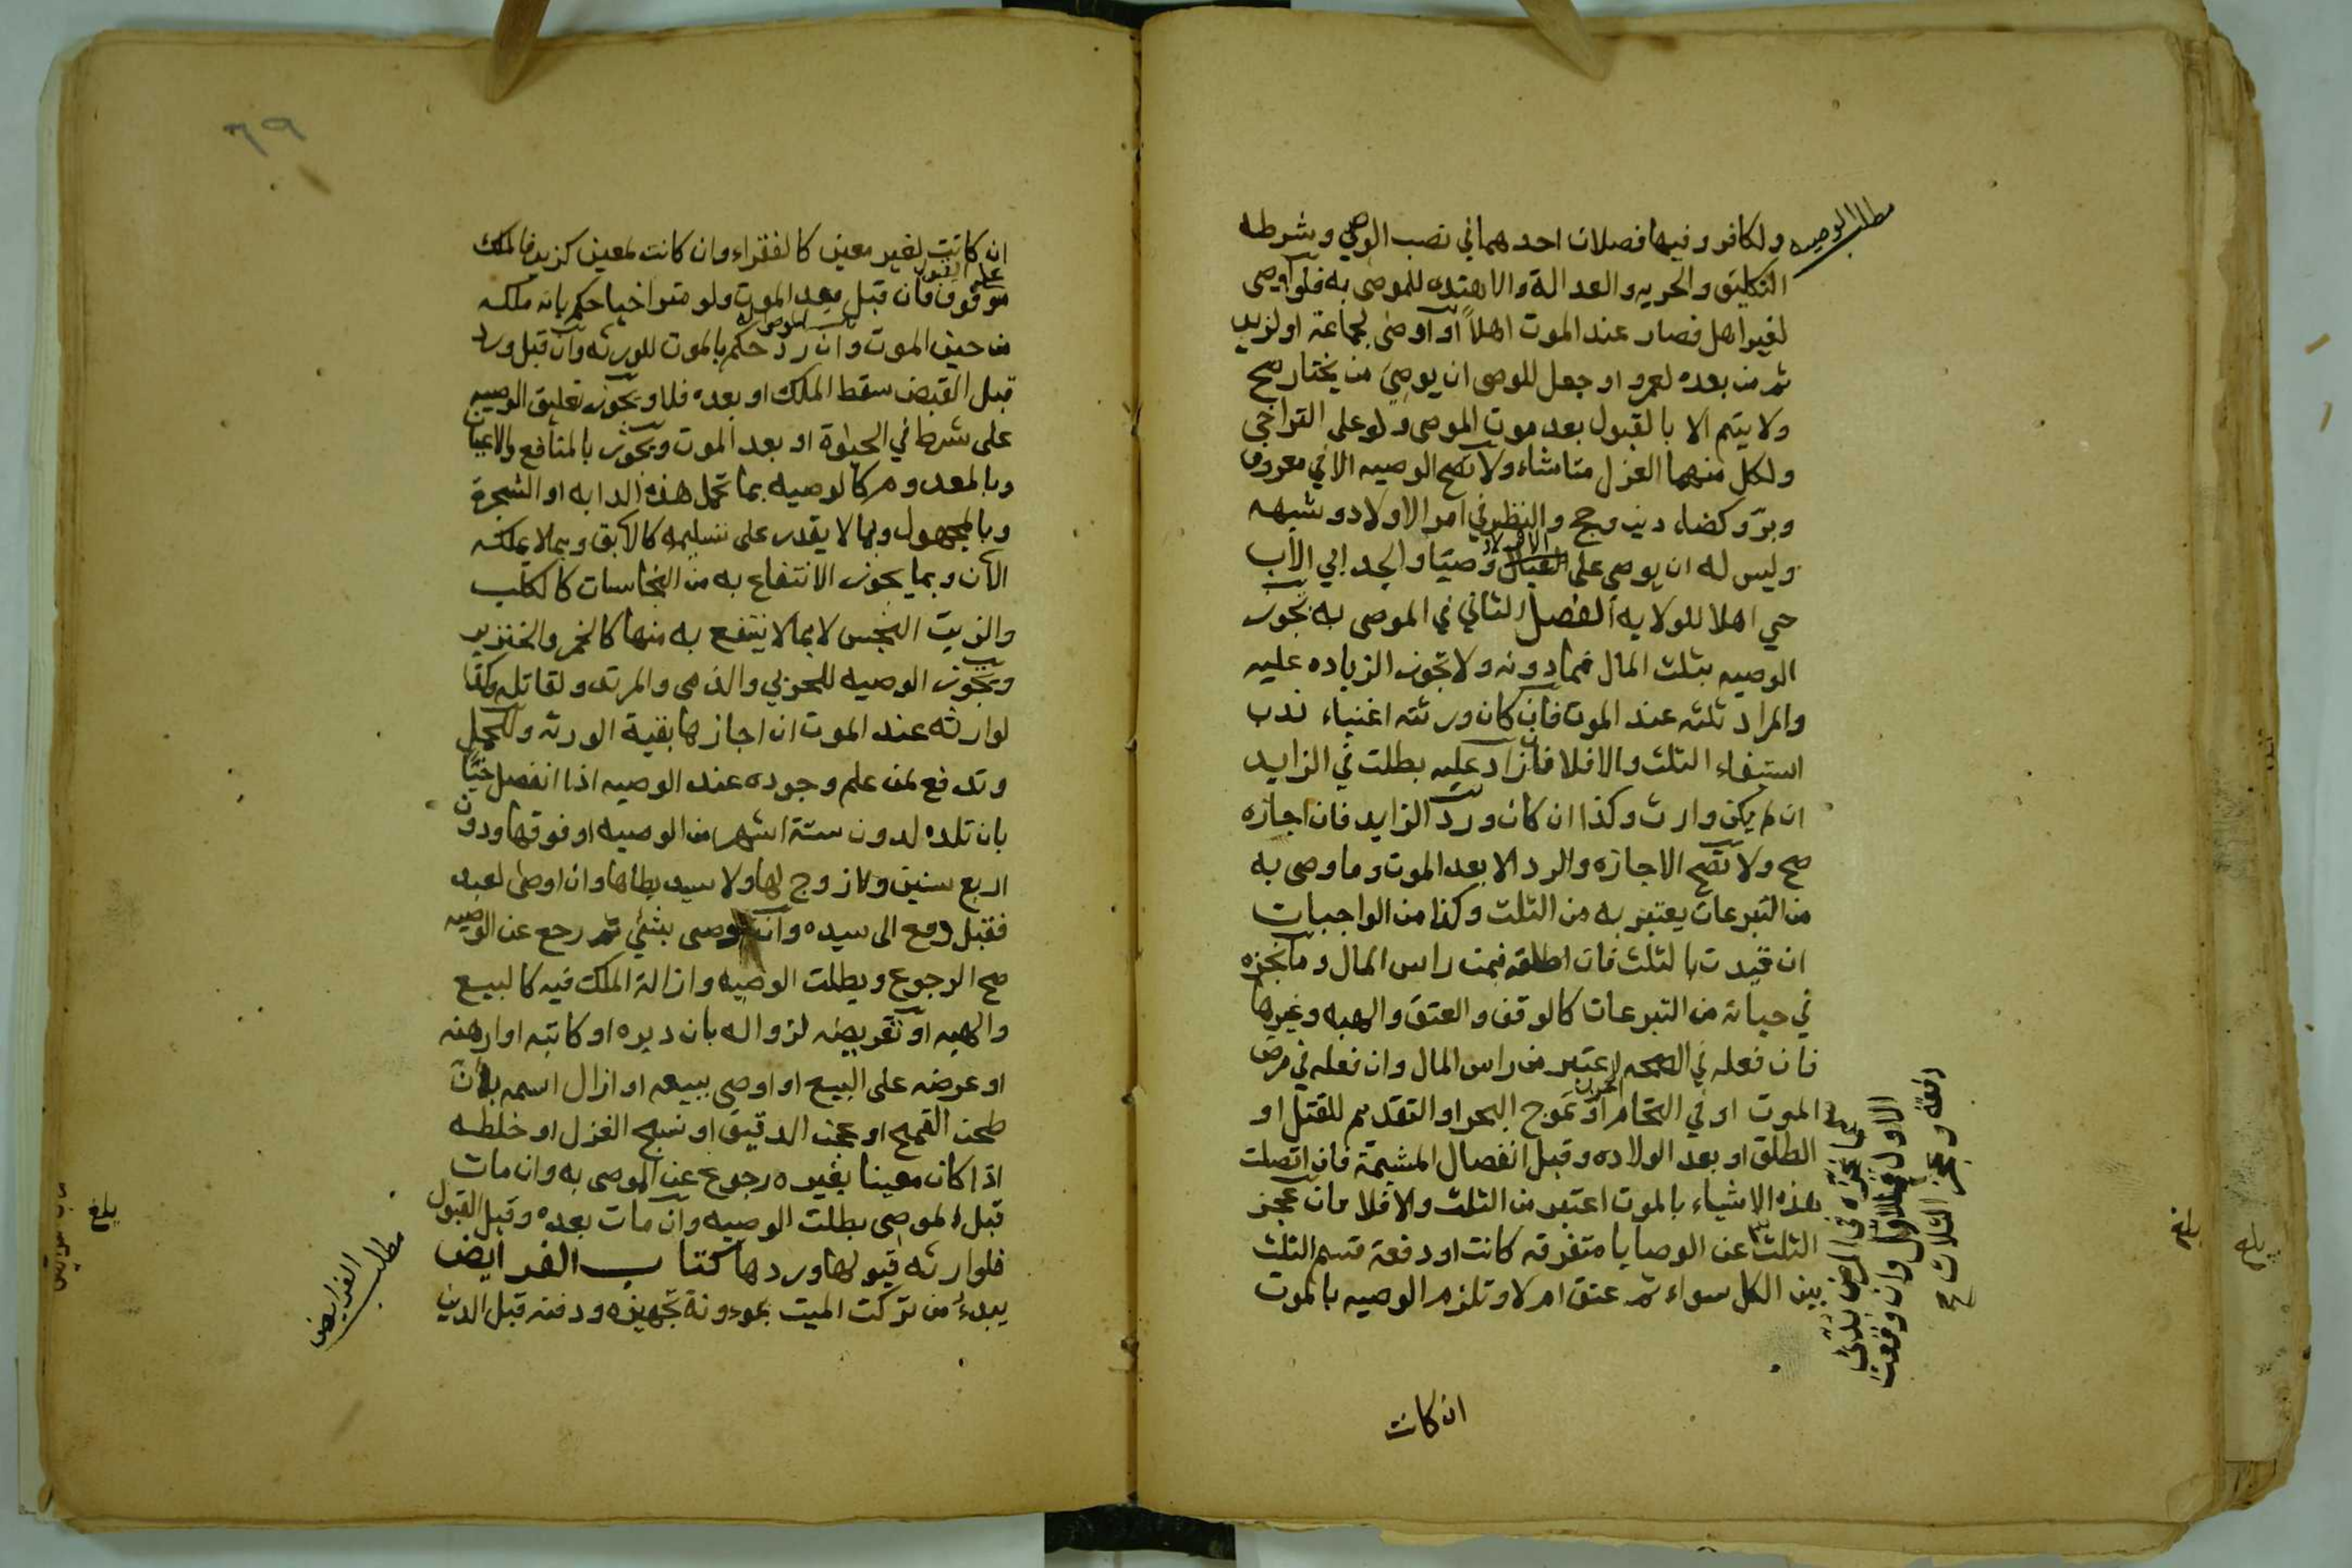 مطلب الوصيه
ولكافر وفيها فصلان احدهما في نصب الوصي وشرطه
التكليف والحريه والعدالة والاهتداء للموصى به فلو اوصى
لغير اهل فصار عند الموت اهلاً او اوصى لجماعة او لزيد
ثم من بعده لعمرو او جعل للوصى ان يوصى من يختار صح
ولا يتم الا بالقبول بعد موت الموصى ولو على التراخي
ولكل منهما العزل متا شاء ولا تصح الوصيه الا في معروف
وبرّ وكضاء دين وحج والنظر في امر الاولاد وشبهه
وليس له ان يوصى على الاولاد وصيّا والجد ابي الاب
حي اهلا للولايه الفصل الثاني في الموصى به تجوز
الوصيه بثلث المال فما دونه ولا تجوز الزياده عليه
والمراد ثلثه عند الموت فان كان ورثته اغنياء ندب
استيفاء الثلث والا فلا فان زاد عليه بطلت في الزايد
ان لم يكن وارث وكذا ان كان ورد الزايد فان اجازه
صح ولا تصح الاجازه والرد الا بعد الموت وما وصى به
من التبرعات يعتبر به من الثلث وكذا من الواجبات
ان قيدت بالثلث فان اطلقه فمن راس المال وما نجزه
في حياته من التبرعات كالوقف والعتق والهبه وغيرها
فان فعله في الصحه اعتبر من راس المال وان فعله في مرض
الموت او في التحام او تموج البحر او التقديم للقتل او
الطلق او بعد الولاده وقبل انفصال المشيمة فان اتصلت
هذه الاشياء بالموت اعتبر من الثلث والا فلا فان عجز
الثلث عن الوصايا متفرقه كانت او دفعة قسم الثلث
بين الكل سواء ثم عتق ام لا وتلزم الوصيه بالموت
عما نجزه في المرض بدئ
الاول فالاول وان وقعت
دفعة وعجز الثلث صح
ان كانت
٦٩
ان كانت لغير معين كالفقراء وان كانت لمعين كزيد فالملك
على القبول
موقوف فان قبل بعد الموت ولو متراخيا حكم بانه ملكه
من حين الموت وان رد حكم بالموت للورثه وان قبل ورد
قبل القبض سقط الملك او بعده فلا وتجوز تعليق الوصيه
على شرط في الحيوة او بعد الموت وتجوز بالمنافع والاعيان
وبالمعدوم كالوصيه بما تحمل هذه الدابه او الشجرة
وبالمجهول وبما لا يقدر على تسليمه كالابق وبما لا يملكه
الان وبما يجوز الانتفاع به من النجاسات كالكلب
والزيت النجس لا بما لا ينتفع به منها كالخمر والخنزير
وتجوز الوصيه للحربي والذمى والمرتد ولقاتله وكذا
لوارثه عند الموت ان اجازها بقية الورثه وللحمل
وتدفع لمن علم وجوده عند الوصيه اذا انفصل حيًّا
بان تلده لدون ستة اشهر من الوصيه او فوقها ودون
اربع سنين ولا زوج لها ولا سيد يطاها وان اوصى لعبد
فقبل دفع الى سيده وان اوصى بشئي ثم رجع عن الوصيه
صح الرجوع وبطلت الوصيه وازالة الملك فيه كالبيع
والهبه او تعريضه لزواله بان دبره او كاتبه او رهنه
او عرضه على البيع او اوصى ببيعه او ازال اسمه بان
طحن القمح او عجن الدقيق او نسج الغزل او خلطه
اذا كان معينا بغيره رجوع عن الموصى به وان مات
قبل الموصى بطلت الوصيه وان مات بعده وقبل القبول
فلوارثه قبولها وردها كتاب الفرايض
يبدء من تركت الميت بموءونة تجهيزه ودفنه قبل الدين
مطلب الفرايض
بلغ